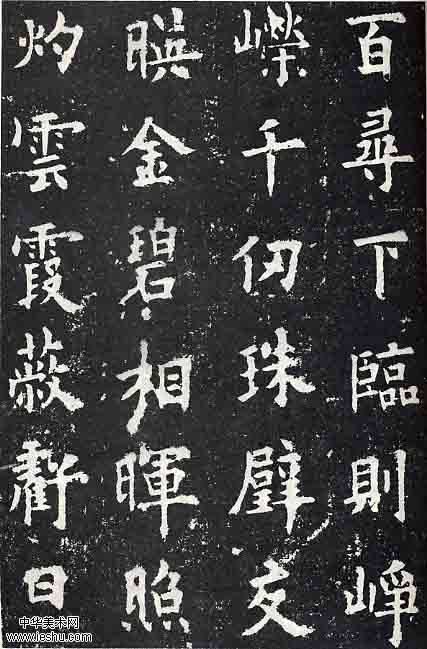 百尋下臨則崢
嶸千仞珠壁交
暎金碧相暉照
灼雲霞蔽虧日
中华美术网
www.ieshu.com